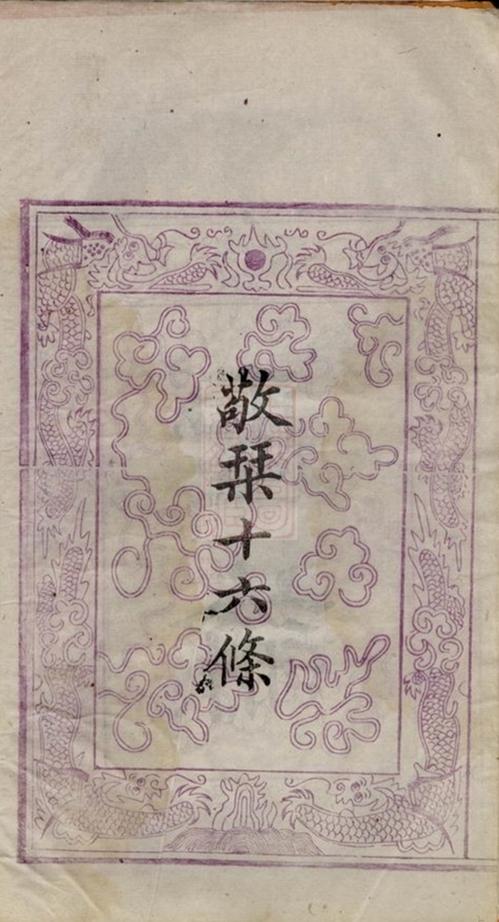 敬栞十六條